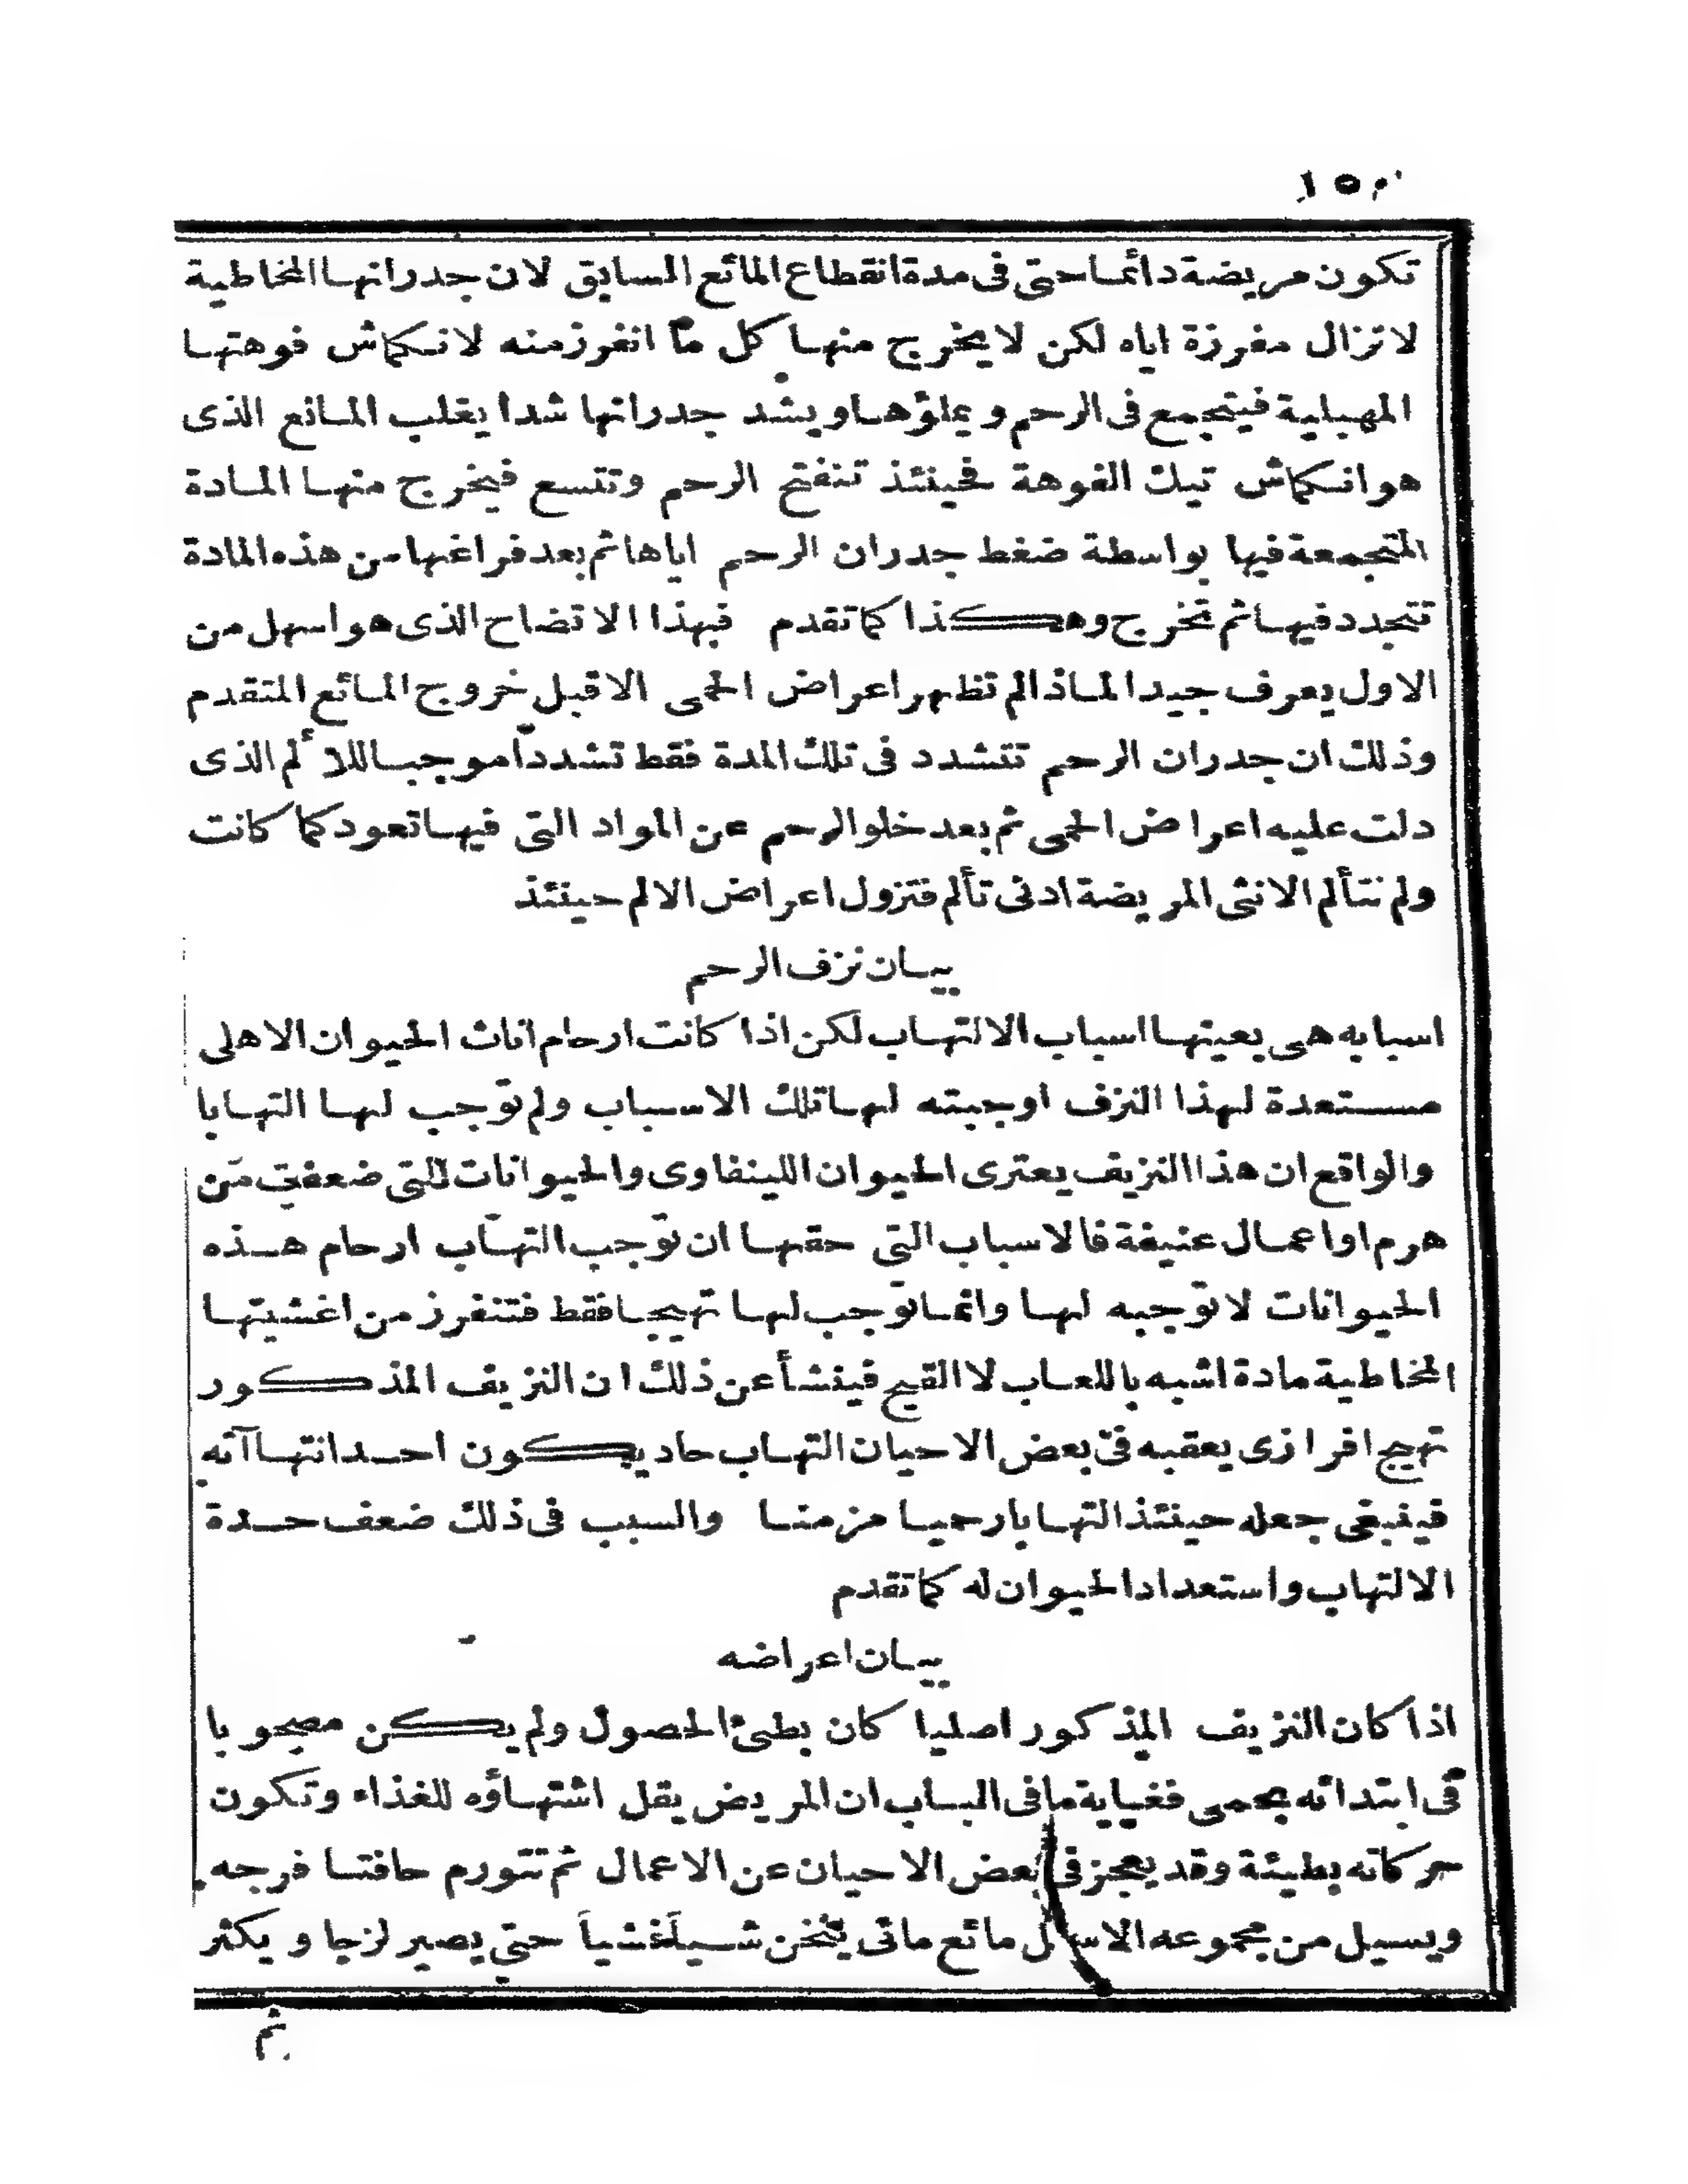 تكون مريضة دائما حتى فى مدة انقطاع المائع السابق لان جدرانها المخاطية
لا تزال مفرزة اياه لكن لا يخرج منها كل ما انفرز منه لانكماش فوهتها
المهبلية فيتجمع فى الرحم ويملؤها ويشد جدرانها شدا يغلب المانع الذى
هو انكماش تيك الفوهة فحينئذ تنفتح الرحم وتتسع فيخرج منها المادة
المتجمعة فيها بواسطة ضغط جدران الرحم اياها ثم بعد فراغها من هذه المادة
تتجدد فيها ثم تخرج وهكذا كما تقدم فبهذا الاتضاح الذى هو اسهل من
الاول يعرف جيدا لماذا لم تظهر اعراض الحمى الا قبل خروج المائع المتقدم
وذلك ان جدران الرحم تتشدد فى تلك المدة فقط تشددا موجبا للألم الذى
دلت عليه اعراض الحمى ثم بعد خلو الرحم عن المواد التى فيها تعود كما كانت
ولم تتألم الانثى المريضة ادنى تألم فتزول اعراض الالم حينئذ
بيان نزف الرحم
اسبابه هى بعينها اسباب الالتهاب لكن اذا كانت ارحام اناث الحيوان الاهلى
مستعدة لهذا النزف اوجبته لها تلك الاسباب ولم توجب لها التهابا
والواقع ان هذا النزيف يعترى الحيوان اللينفاوى والحيوانات التى ضعفت من
هرم او اعمال عنيفة فالاسباب التى حقها ان توجب التهاب ارحام هذه
الحيوانات لا توجبه لها وانما توجب لها تهيجا فقط فتنفرز من اغشيتها
المخاطية مادة اشبه باللعاب لا القيح فينشأ عن ذلك ان النزيف المذكور
تهيج افرازى يعقبه فى بعض الاحيان التهاب حاد يكون احد انتهاآته
فينبغى جعله حينئذ التهابا رحميا مزمنا والسبب فى ذلك ضعف حدة
الالتهاب واستعداد الحيوان له كما تقدم
بيان اعراضه
اذا كان النزيف المذكور اصليا كان بطئ الحصول ولم يكن مصحوبا
فى ابتدائه بحمى فغاية ما فى الباب ان المريض يقل اشتهاؤه للغذاء وتكون
حركاته بطيئة وقد يعجز فى بعض الاحيان عن الاعمال ثم تتورم حافتا فرجه
ويسيل من مجموعه الاسفل مائع مائى يثخن شيأ فشيأ حتى يصير لزجا ويكثر
ثم